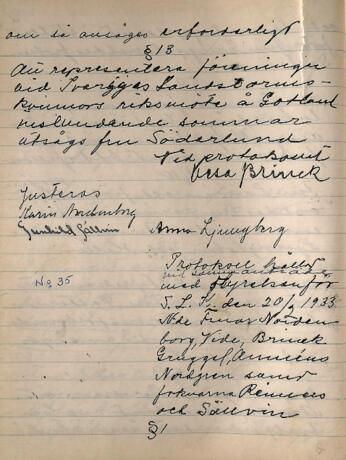 om så ansåges erforderligt
§ 13
Att representera föreningen
vid Sveriges Landstorms-
kvinnors riksmöte å Gotland
nästkommande sommar
utsågs fru Söderlund
Vid protokollet
Brinck
Justeras
Karin Nordenborg
Gunhild Sällvin
Anna Ljungberg
No 35
Protokoll hållet
med styrelsen för
S. L. K. den 20/2 1933
Närv. Fruar Norden
borg, Vide, Brinck
Nordgren samt
fröknarna Reimers
och Sällvin
§ 1